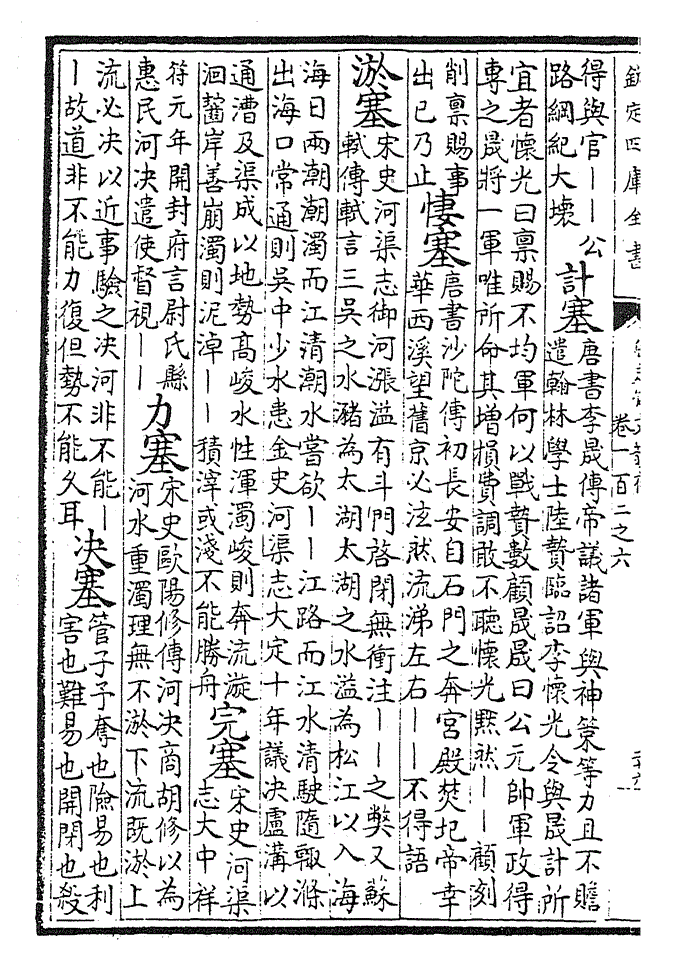 欽定四庫全書
卷一百二之六
得與官——公
路綱紀大壊
計塞
唐書李晟傳帝議諸軍與神策等力且不贍
遣翰林學士陸贄臨詔李懷光令與晟計所
宜者懷光曰稟賜不均軍何以戰贄數顧晟晟曰公元帥軍政得
專之晟將一軍唯所命其增損費調敢不聽懷光黙然——顧刻
削稟賜事
出已乃止
悽塞
唐書沙陀傳初長安自石門之奔宮殿焚圮帝幸
華西溪望舊京必泫然流涕左右——不得語
淤塞
宋史河渠志御河漲溢有斗門啓閉無衝注——之弊又蘇
軾傳軾言三吳之水瀦為太湖太湖之水溢為松江以入海
海日兩潮潮濁而江清潮水嘗欲——江路而江水清駛隨輙滌
出海口常通則吳中少水患金史河渠志大定十年議决盧溝以
通漕及渠成以地勢髙峻水性渾濁峻則奔流漩
洄齧岸善崩濁則泥淖——積滓或淺不能勝舟
完塞
宋史河渠
志大中祥
符元年開封府言尉氏縣
惠民河决遣使督視——
力塞
宋史歐陽修傳河决商胡修以為
河水重濁理無不淤下流既淤上
流必决以近事驗之决河非不能—
—故道非不能力復但勢不能久耳
决塞
管子予奪也險易也利
害也難易也開閉也殺